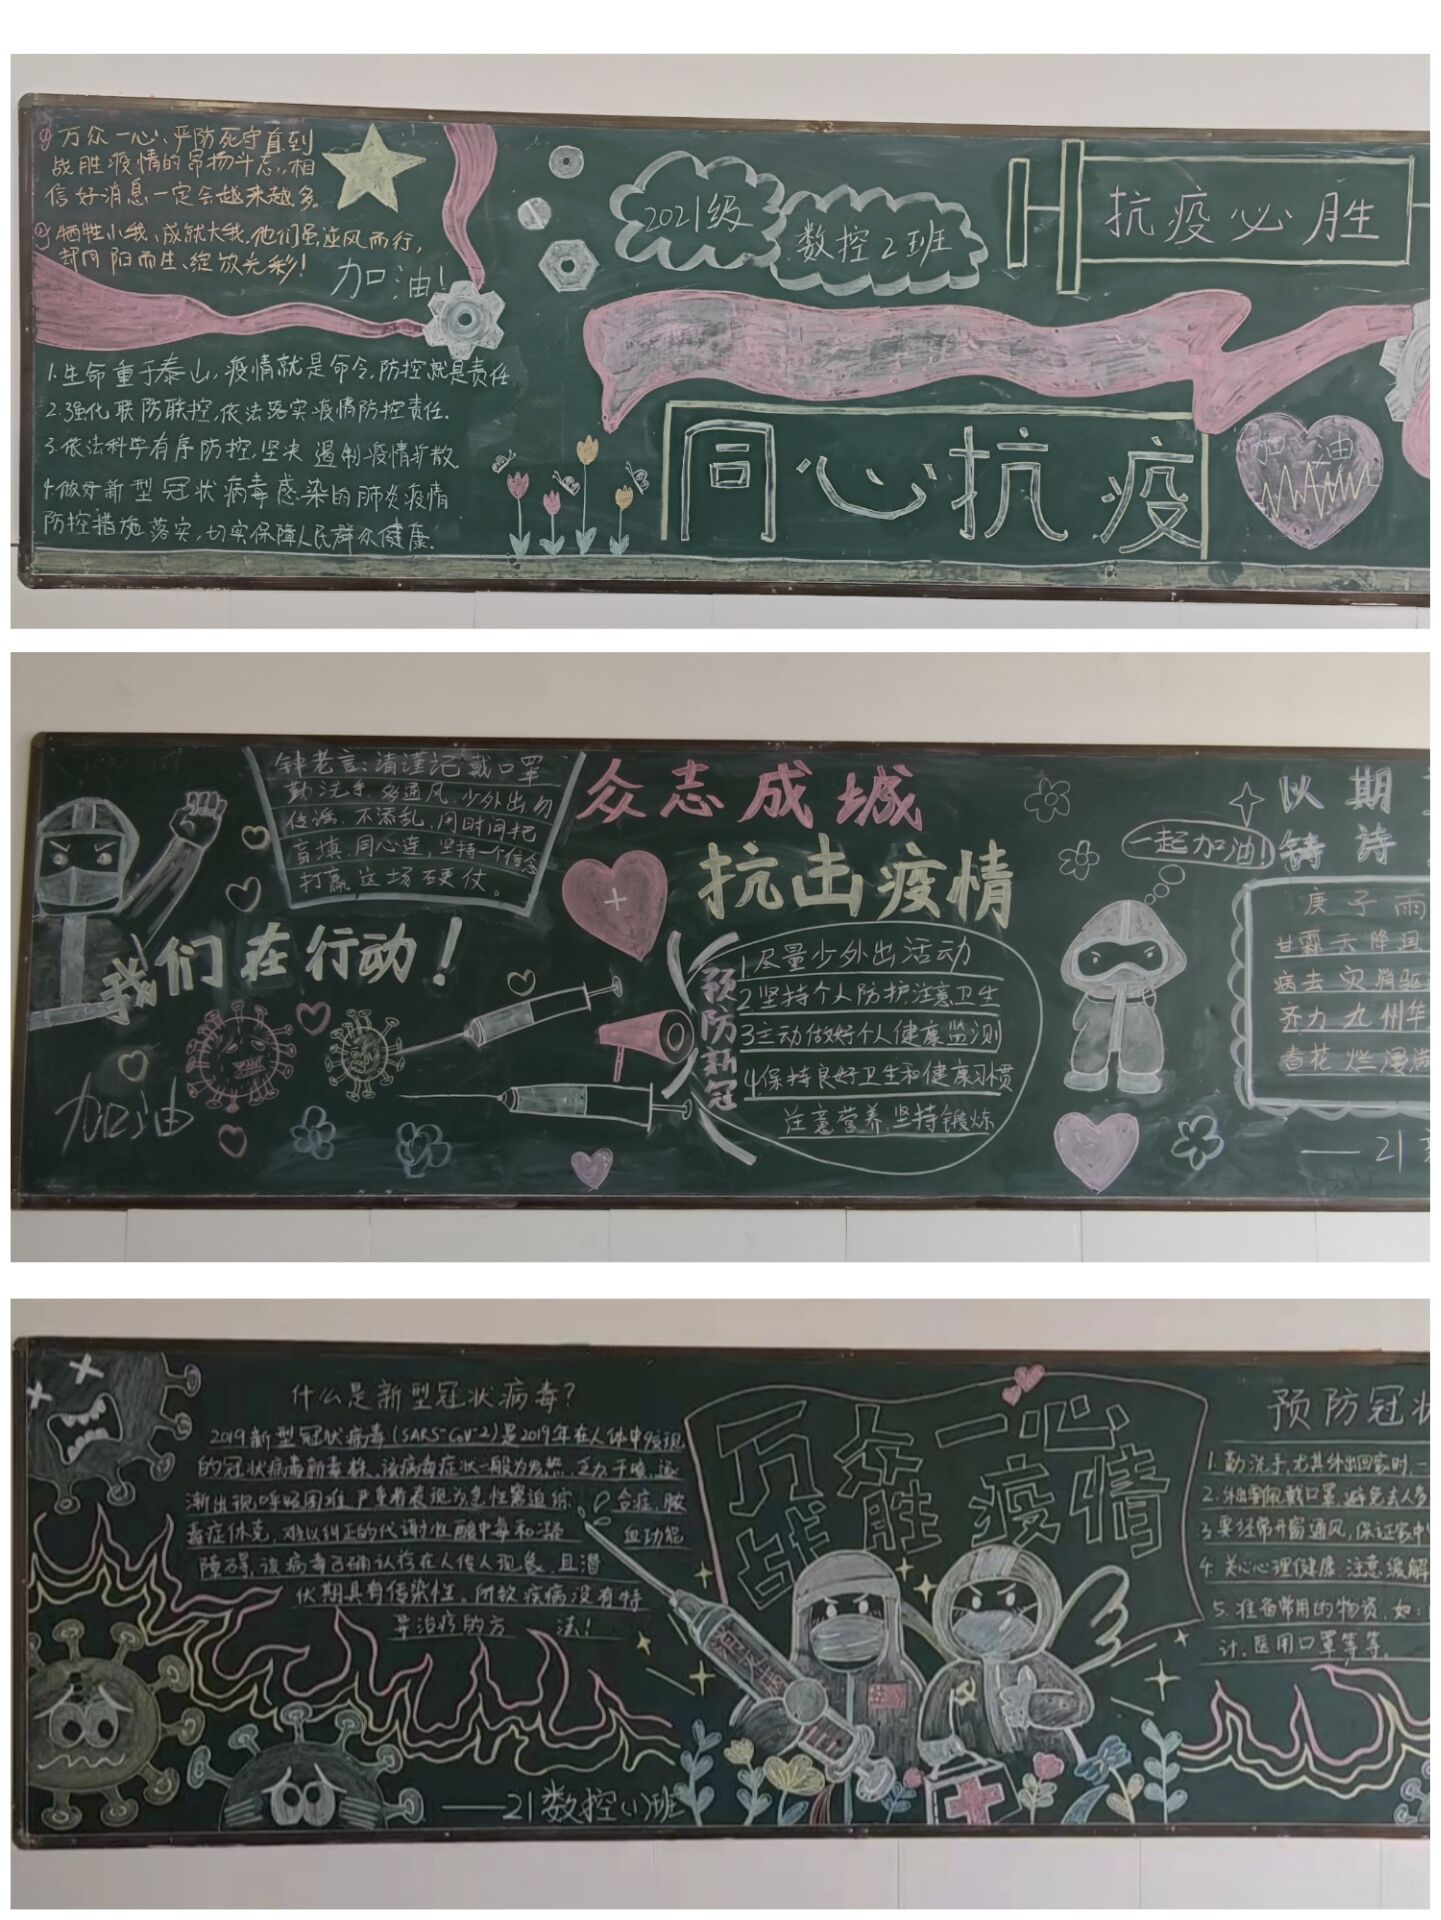 万众一心、严防死守直到
战胜疫情的昂扬斗志,相
信好消息一定会越来越多。
牺牲小我、成就大我.他们虽逆风而行,
却向阳而生、绽放光彩!
加油!
1.生命重于泰山,疫情就是命令,防控就是责任.
2.强化联防联控,依法落实疫情防控责任.
3.依法科学有序防控,坚决遏制疫情扩散
4.做好新型冠状病毒感染的肺炎疫情
防控措施落实,切实保障人民群众健康.
2021级
数控2班
抗疫必胜
同心抗疫
加油
钟老言:请谨记戴口罩
勤洗手,多通风,少外出勿
传谣,不添乱,闲时间把
育填,同心连,坚持一个信念
打赢这场硬仗。
我们在行动!
加油
众志成城
抗击疫情
预防新冠
1.尽量少外出活动
2.坚持个人防护注意卫生
3主动做好个人健康监测
4.保持良好卫生和健康习惯
注意营养,坚持锻炼
一起加油!
以期
铸诗
庚子雨
甘霖天降润
病去灾消驱
齐力九州华
春花烂漫满
——21
什么是新型冠状病毒?
2019新型冠状病毒(SARS-CoV-2)是2019年在人体中发现
的冠状病毒新毒株,该病毒症状一般为发热、乏力、干咳、逐
渐出现呼吸困难,严重者表现为急性窘迫综合症、脓
毒症休克、难以纠正的代谢性酸中毒和凝血功能
障碍,该病毒已确认存在人传人现象,且潜
伏期具有传染性。
导治疗的方法!
——21数控(1)班
万众一心
战胜疫情
预防冠状
1.勤洗手,尤其外出回家时,一
2.外出要佩戴口罩,避免去人多
3.要经常开窗通风,保证家中
4.关心心理健康,注意缓解
5.准备常用的物资,如:
计、医用口罩等等。